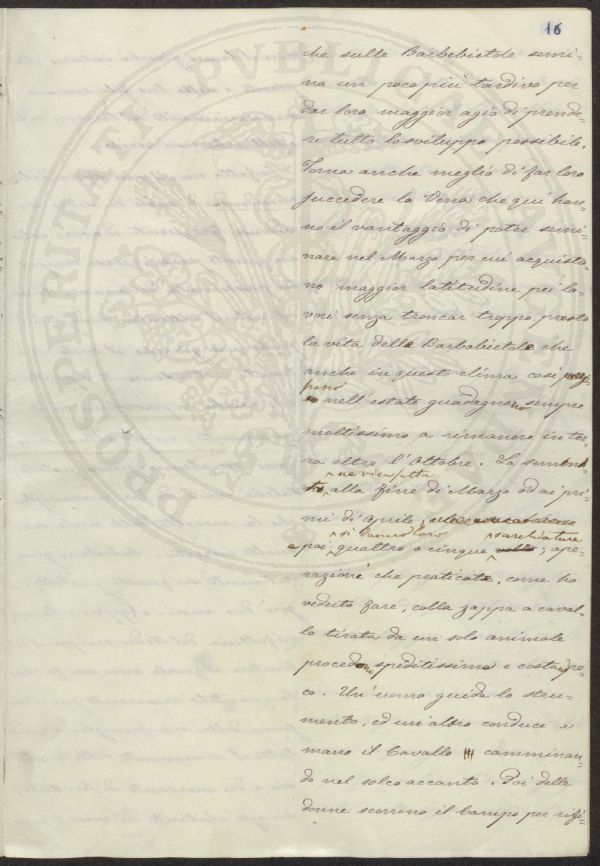 16
che sulle Barbebietole semi-
na un poco più tardivo per
dar loro maggior agio di prende-
re tutto lo sviluppo possibile.
Torna anche meglio di far loro
succedere la Vena che qui han-
no il vantaggio di poter semi-
nare nel Marzo per cui acquista-
no maggior latitudine pei la-
vori senza troncar troppo presto
la vita delle Barbabietole che
anche in questo clima così
nell'estate guadagnano sempre
moltissimo a rimanere in ter-
ra oltre l'Ottobre. La sement-
ta ne vien fatta alla fine di Marzo od ai pri-
mi di Aprile;
e poi si danno loro quattro o cinque sarchiature; ope-
razioni che praticate, come ho
veduto fare, colla zappa a caval-
lo tirata da un solo animale
procedono speditissime e costano po-
co. Un'uomo guida lo stru-
mento, ed un'altro conduce a
mano il Cavallo camminan-
do nel solco accanto. Poi delle
donne scorrono il Campo per rifi-
PROSPERITATI PVBLICAE